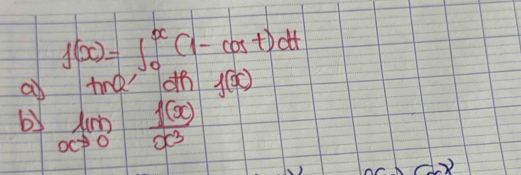 f(x) = ∫₀ˣ (1 - cos t) dt
a) đh f(x)
b) lim x→0 f(x)/x³